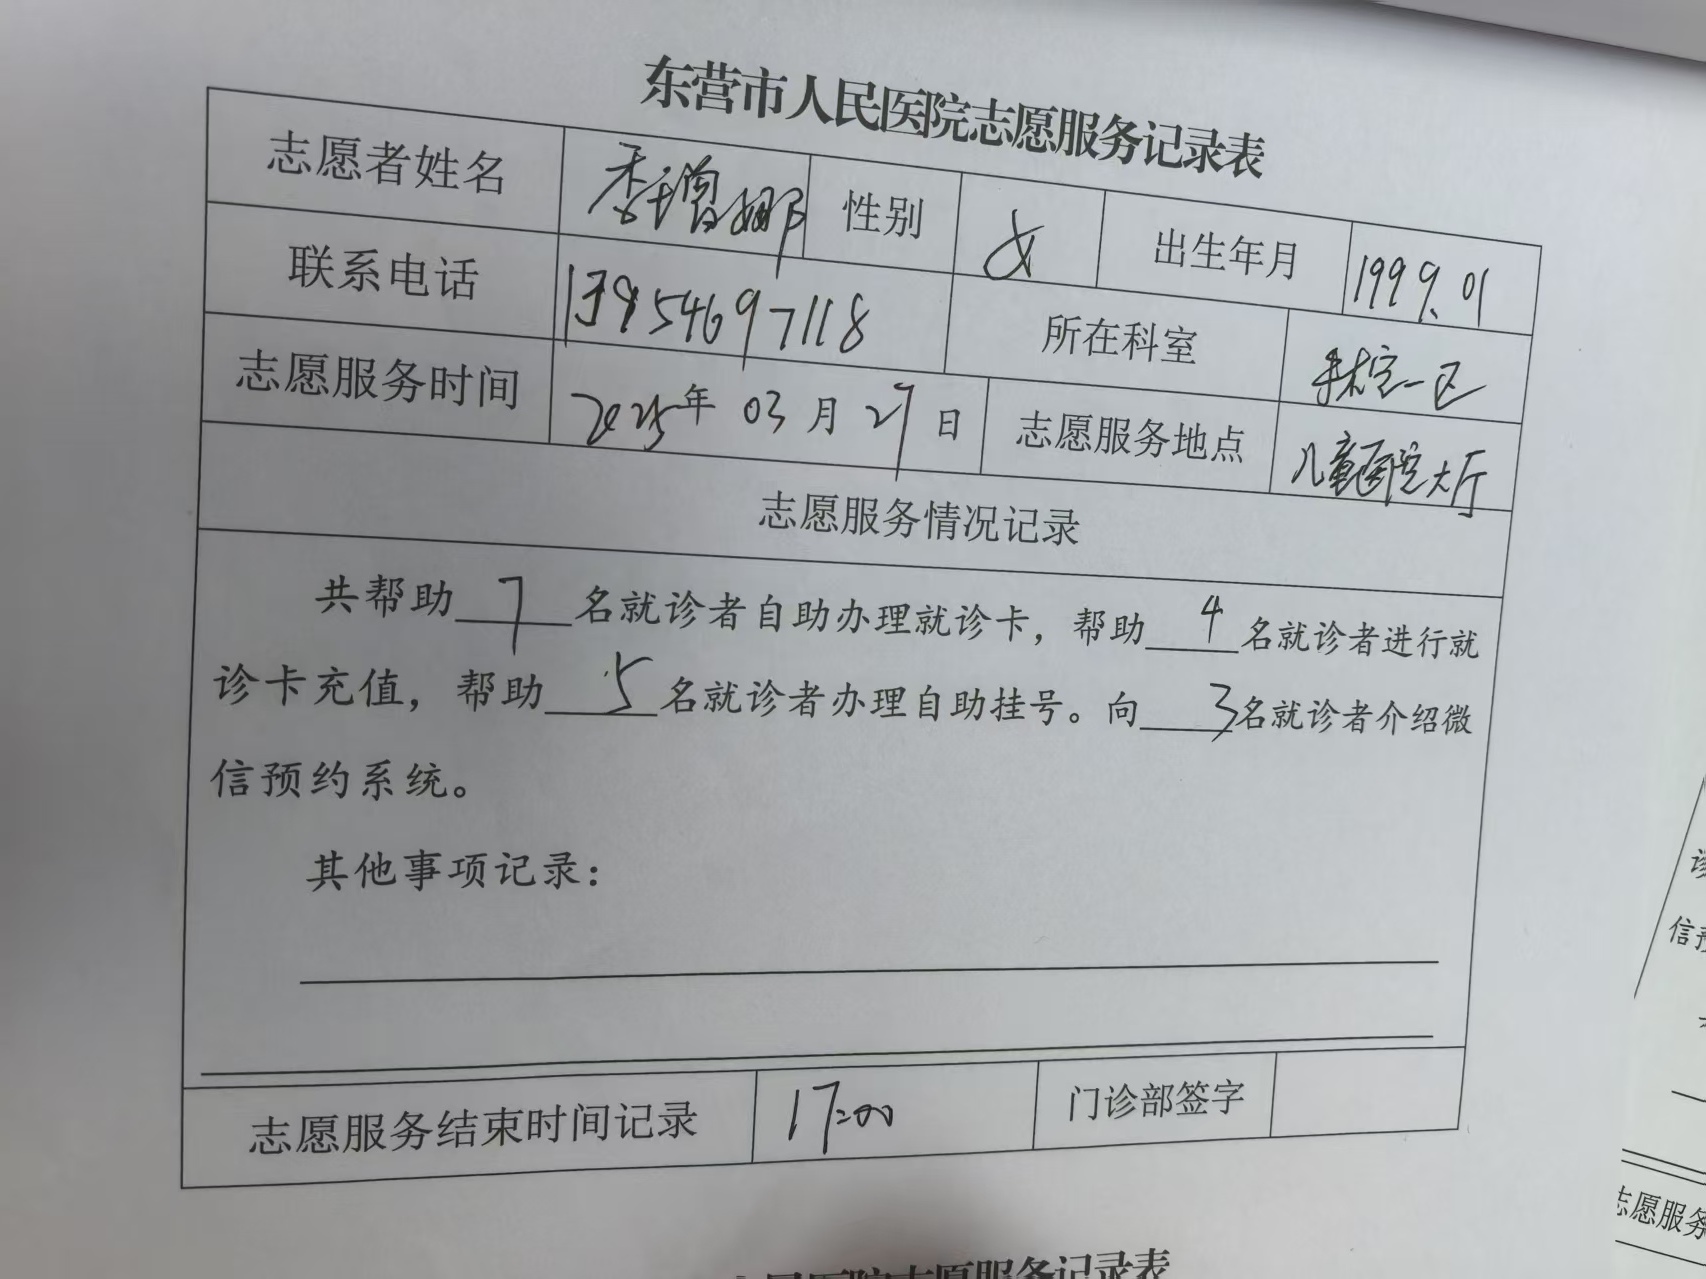 东营市人民医院志愿服务记录表
志愿者姓名 李增娜 性别 女 出生年月 1999.01
联系电话 所在科室 手术室一区
志愿服务时间 2025年 03 月 27 日 志愿服务地点 儿童医院大厅
志愿服务情况记录
共帮助 7 名就诊者自助办理就诊卡，帮助 4 名就诊者进行就
诊卡充值，帮助 5 名就诊者办理自助挂号。向 3 名就诊者介绍微
信预约系统。
其他事项记录：
志愿服务结束时间记录 17:00 门诊部签字
志愿服务
人民医院志愿服务记录表